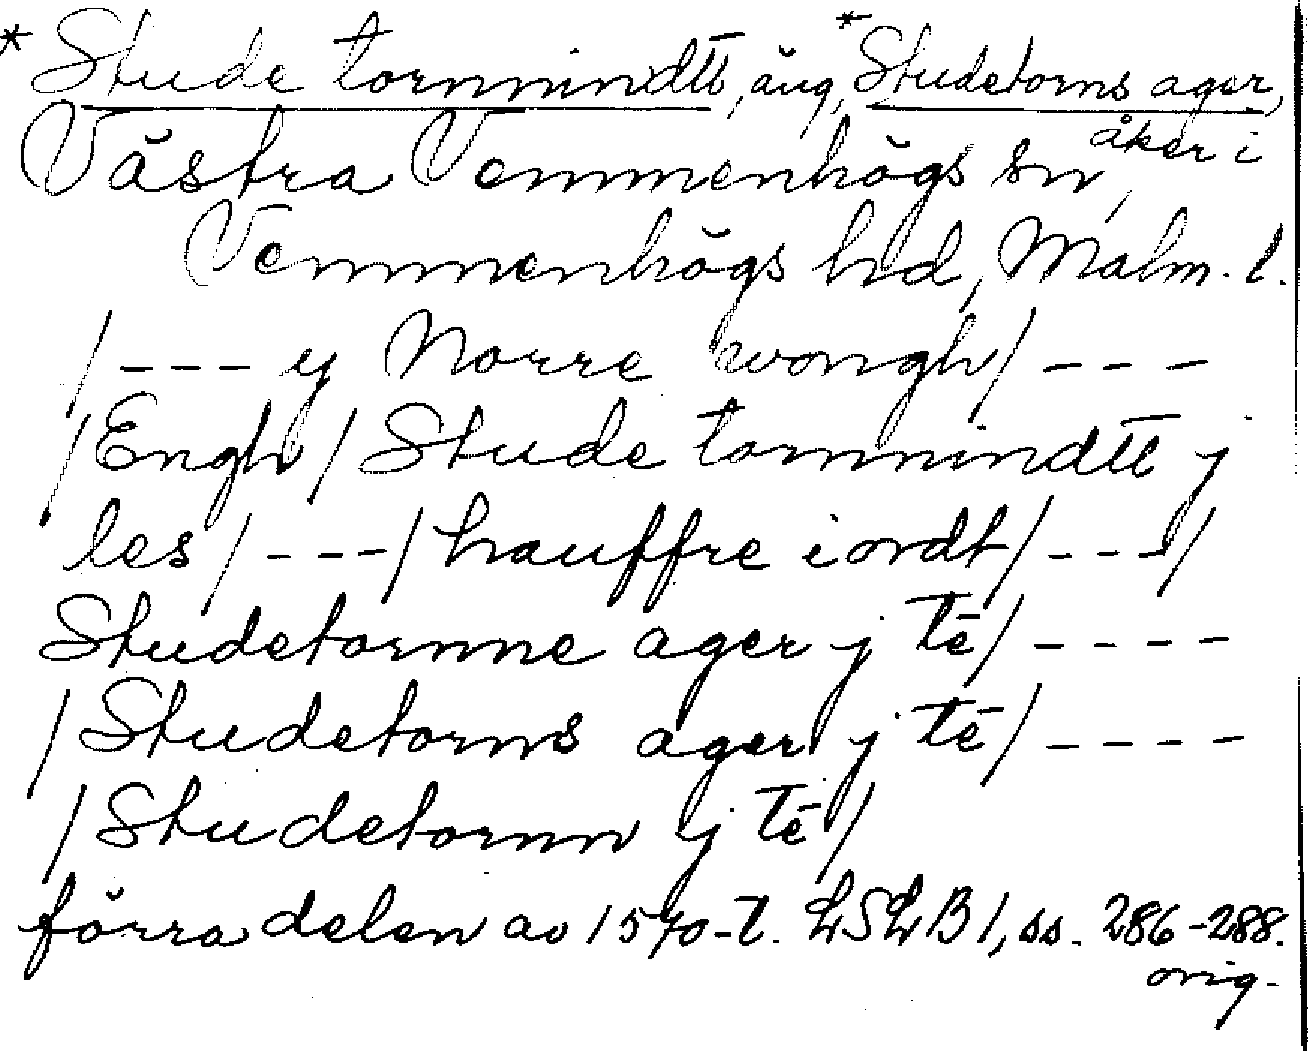 *Stude tornnindtt, äng, *Studetorns ager,
åker i
Västra Vemmenhögs sn,
Vemmenhögs hd, Malm. l.
/--- y Norre wongh/ ---
/Engh/ Stude tornnindtt j
les/ ---/ hauffre iordt/ ---/
Studetornne ager j tē/ ----
/Studetorns ager j tē/ ----
/Studetornn j tē/
förra delen av 1570-t. LSLB 1, ss. 286-288.
orig.